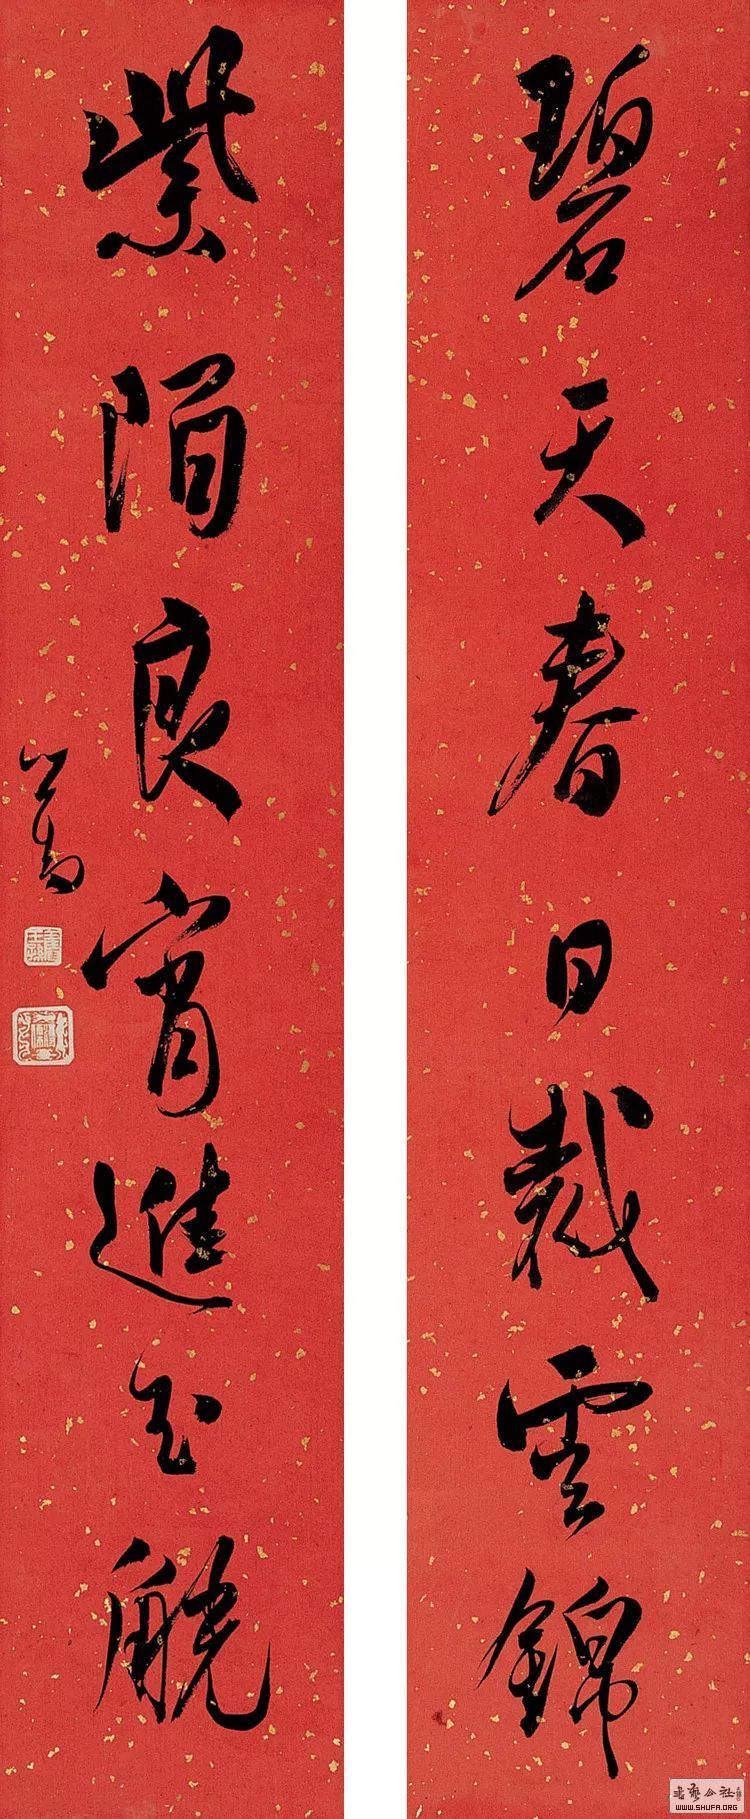 碧天春日裁雲錦
紫陌良宵進玉觥
心畬
WWW.SHUFA.ORG